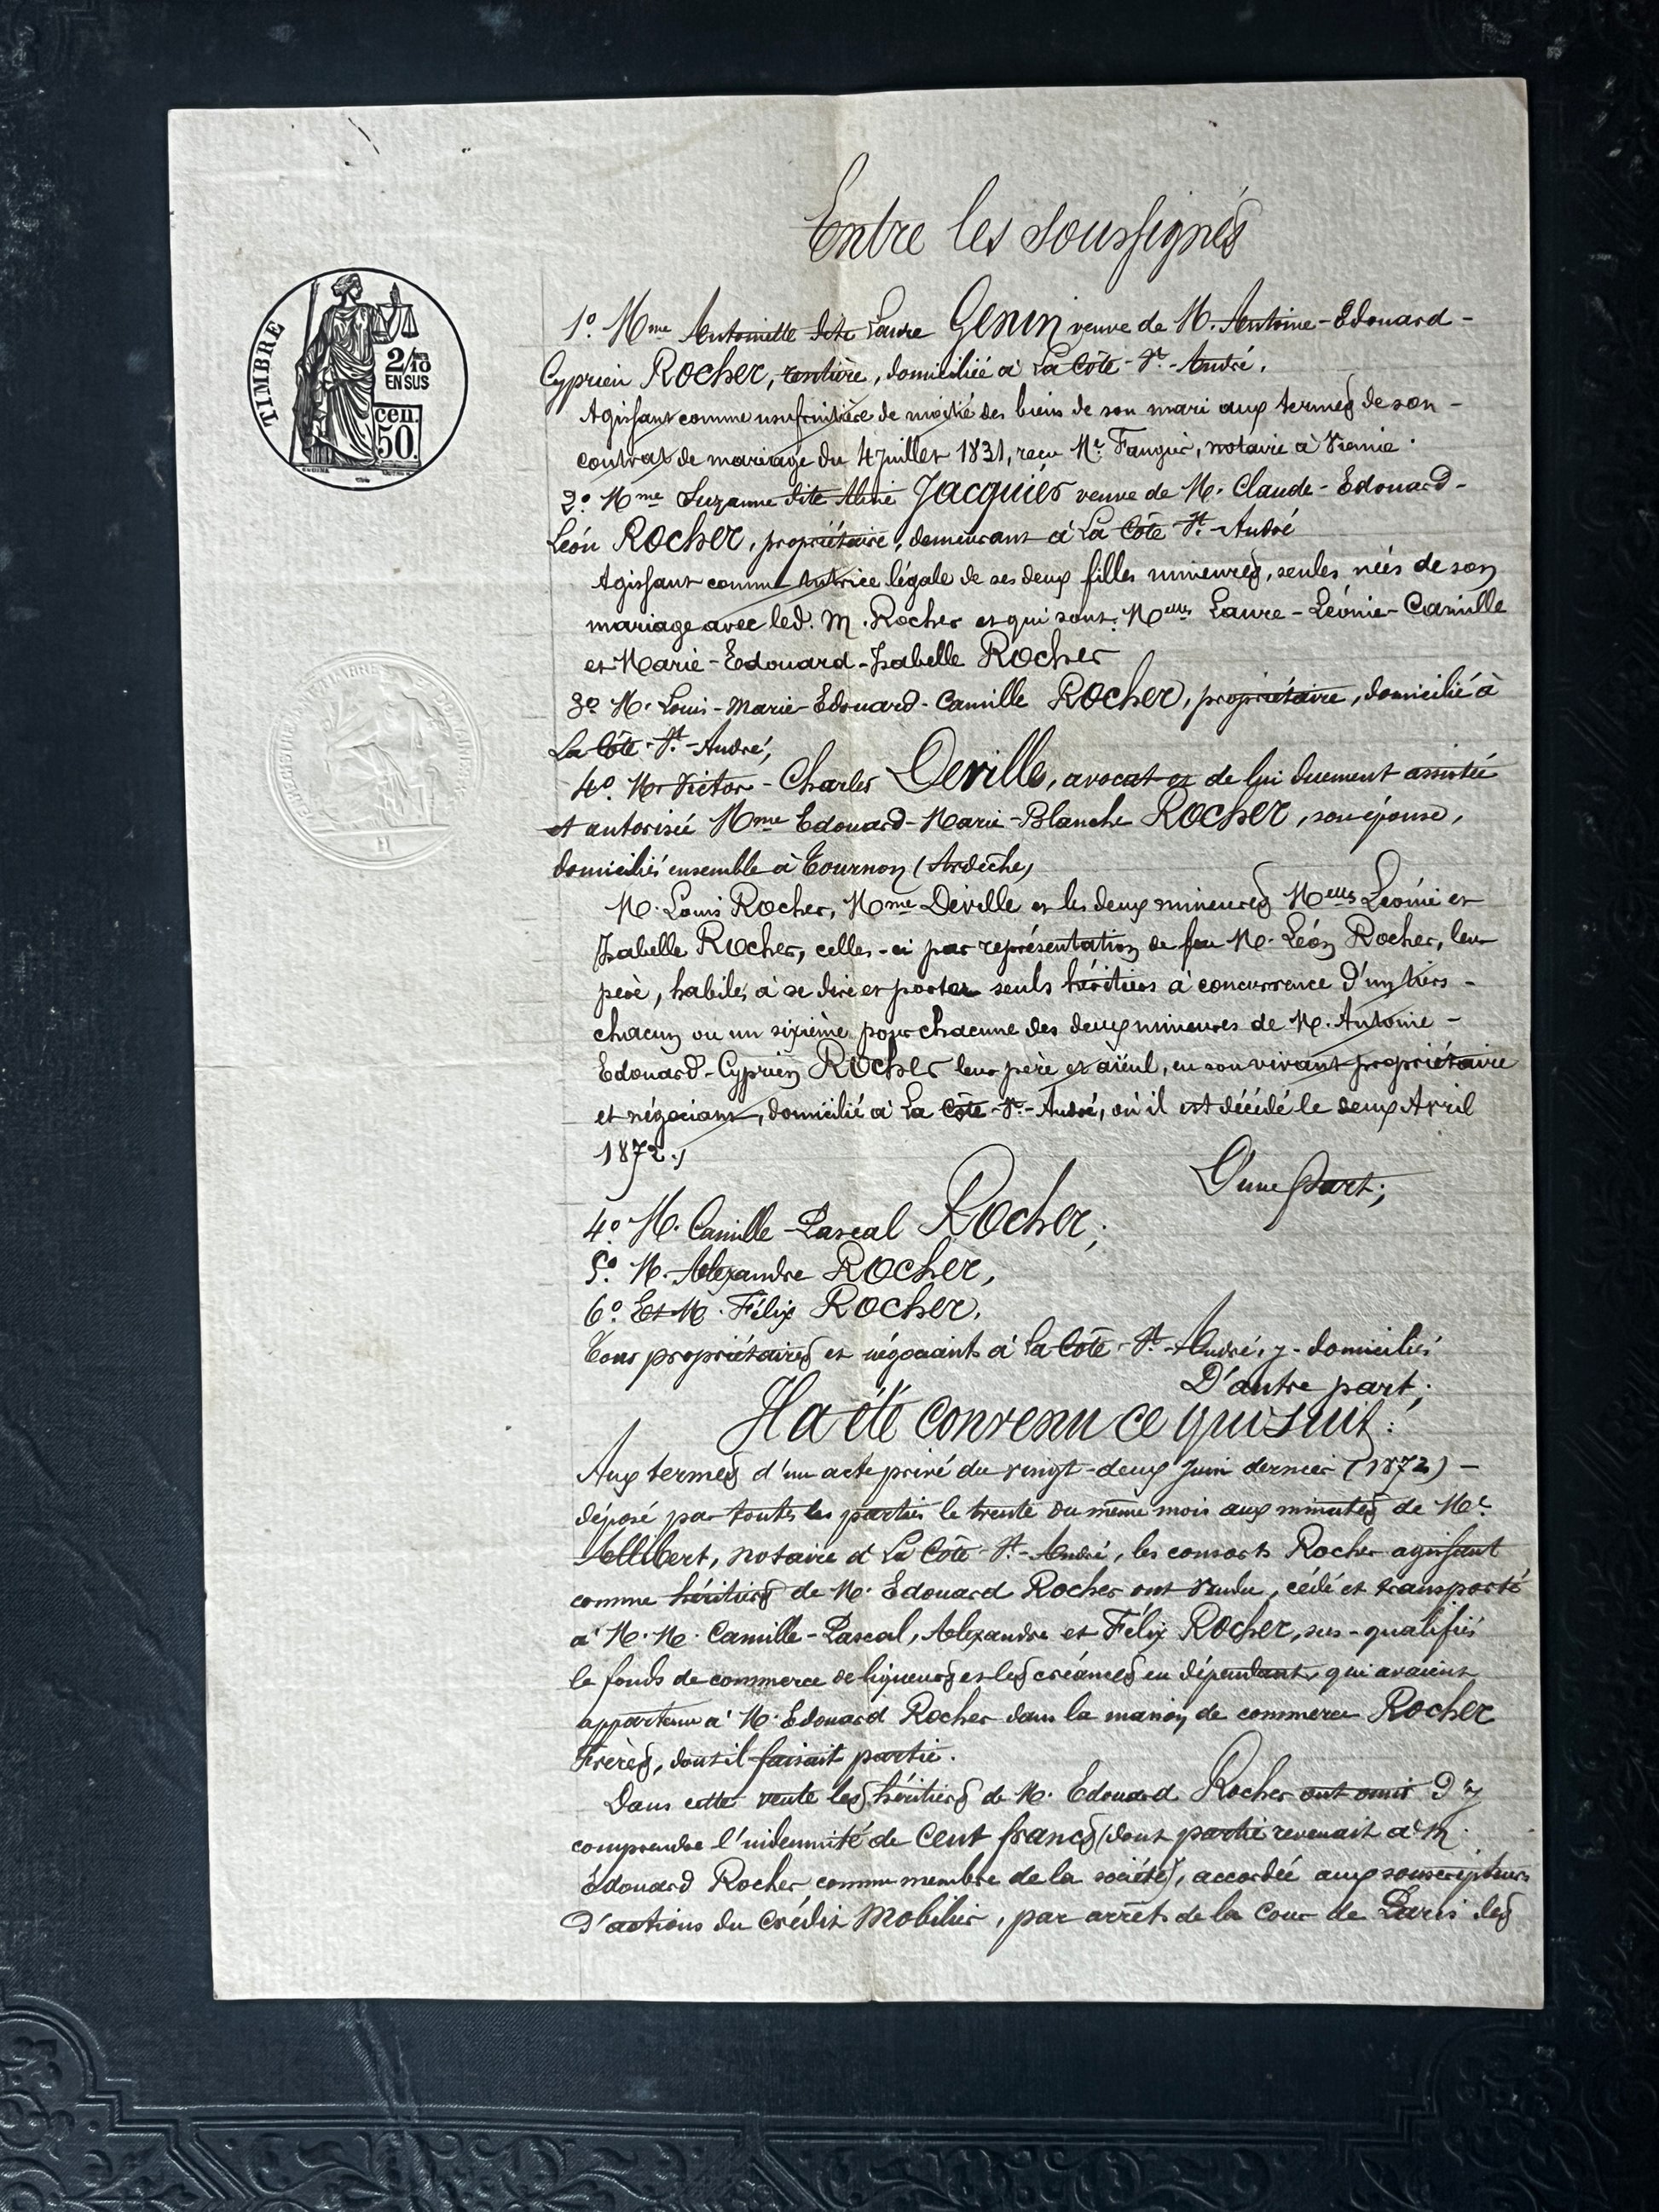 Entre les soussignés
TIMBRE
2/10
EN SUS
cen.
50.
1º. Mme Antoinette dite Laure Genin veuve de M. Antoine-Edouard-
Cyprien Rocher, rentière, domiciliée à La Côte-St.-André,
Agissant comme usufruitière de moitié des biens de son mari aux termes de son
contrat de mariage du 4 juillet 1831, reçu Me. notaire à Vienne
2º. Mme Suzanne dite Jacquier veuve de M. Claude-Edouard-
Léon Rocher, propriétaire, demeurant à La Côte St.-André
Agissant comme tutrice légale de ses deux filles mineures, seules nées de son
mariage avec led. M. Rocher et qui sont: Melles Laure-Léonie-Camille
et Marie-Edouard-Isabelle Rocher
3º M. Louis-Marie-Edouard-Camille Rocher, propriétaire, domicilié à
La Côte-St.-André,
4º. M. Victor-Charles Deville, avocat et de lui duement assistée
et autorisée Mme Edouard-Marie-Blanche Rocher, son épouse,
domiciliés ensemble à Tournon (Ardèche)
M. Louis Rocher, Mme Deville et les deux mineures Melles Léonie et
Isabelle Rocher, celles-ci par représentation de feu M. Léon Rocher, leur
père, habiles à se dire et porter seuls héritiers à concurrence d'un tiers
chacun ou un sixième pour chacune des deux mineures de M. Antoine-
Edouard-Cyprien Rocher leur père et aïeul, en son vivant propriétaire
et négociant, domicilié à La Côte-St.-André, où il est décédé le deux Avril
1872.,
D'une part;
4º. M. Camille-Pascal Rocher;
5º. M. Alexandre Rocher,
6º Et M. Félix Rocher,
Tous propriétaires et négociants à La Côte-St.-André, y-domiciliés
D'autre part;
Il a été convenu ce qui suit:
Aux termes d'un acte privé du vingt-deux Juin dernier (1872)
déposé par toutes les parties le trente du même mois aux minutes de Me.
Allibert, notaire à La Côte-St.-André, les consorts Rocher agissant
comme héritiers de M. Edouard Rocher ont vendu, cédé et transporté
à M. M. Camille-Pascal, Alexandre et Félix Rocher, sus-qualifiés
le fonds de commerce de liqueurs et les créances en dépendant, qui avaient
appartenu à M. Edouard Rocher dans la maison de commerce Rocher
Frères, dont il faisait partie.
Dans cette vente les héritiers de M. Edouard Rocher ont omis d'y
comprendre l'indemnité de cent francs (dont partie revenait à M.
Edouard Rocher comme membre de la société), accordée aux souscripteurs
d'actions du Crédit Mobilier, par arrêts de la Cour de Paris des